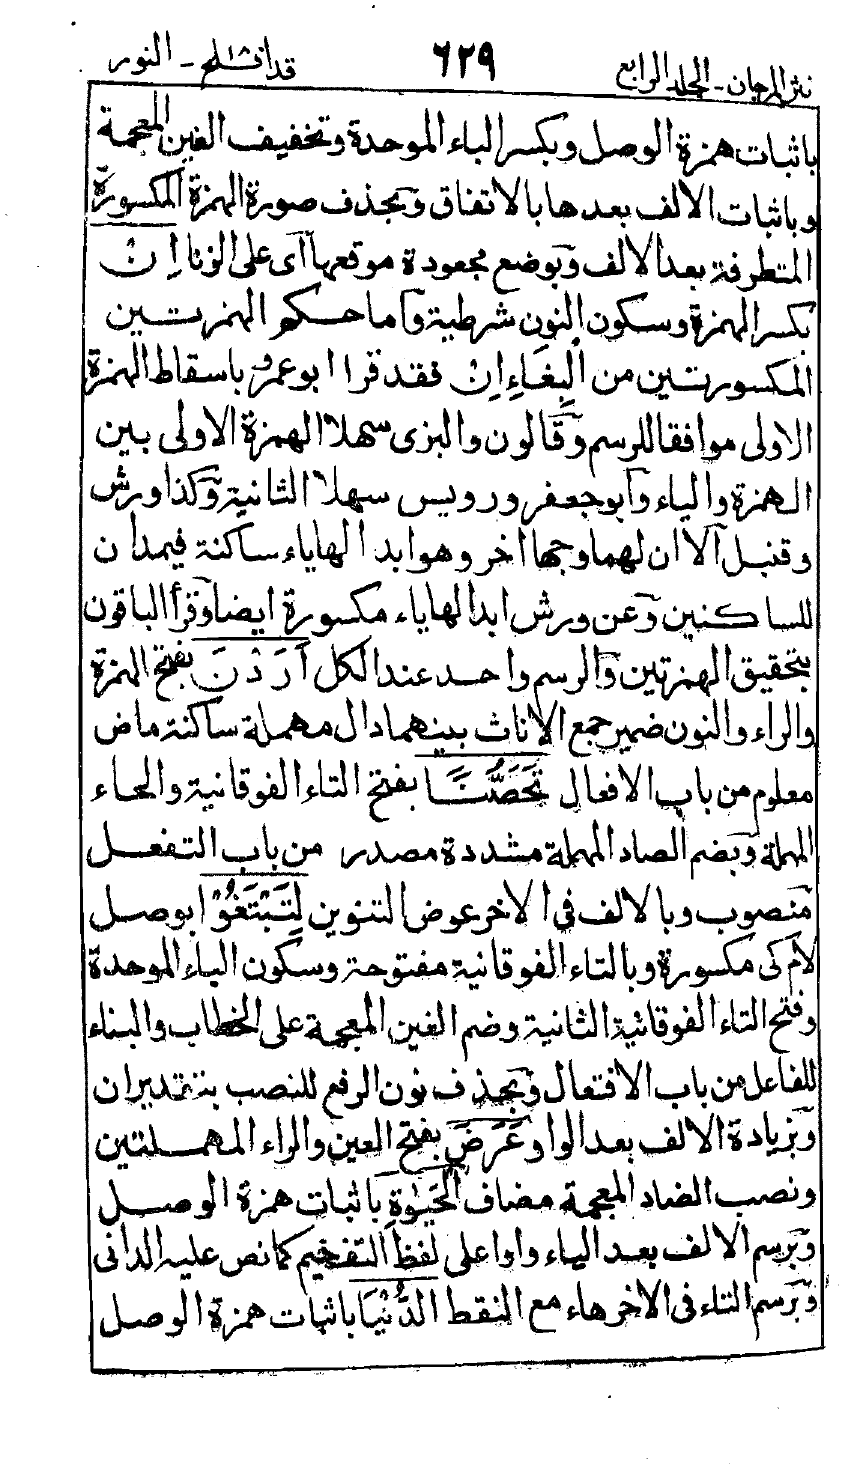 نثر المرجان - المجلد الرابع ٦٢٩ قد افلح ١٨ - النور
باثبات همزة الوصل وبكسر الباء الموحدة وتخفيف الغين المعجمة
وباثبات الالف بعدها بالاتفاق وبحذف صورة الهمزة المكسورة
المتطرفة بعد الالف وبوضع مجعودة موقعها اى على الزنا إِنْ
بكسر الهمزة وسكون النون شرطية واما حكم الهمزتين
المكسورتين من الْبِغَاءِ اِنْ فقد قرا ابو عمرو باسقاط الهمزة
الاولى موافقا للرسم وقالون والبزى سهلا الهمزة الاولى بين
الهمزة والياء وابو جعفر ورويس سهلا الثانية وكذا ورش
وقنبل الا ان لهما وجها اخر وهو ابدالها ياء ساكنة فيمدان
للساكنين وعن ورش ابدالها ياء مكسورة ايضا وقرأ الباقون
بتحقيق الهمزتين والرسم واحد عند الكل اَرَدْنَ بفتح الهمزة
والراء والنون ضمير جمع الاناث بينهما دال مهملة ساكنة ماض
معلوم من باب الافعال تَحَصُّنًا بفتح التاء الفوقانية والحاء
المهملة وبضم الصاد المهملة مشددة مصدر من باب التفعل
منصوب وبالالف فى الاخر عوض التنوين لِتَبْتَغُوْا بوصل
لام كى مكسورة وبالتاء الفوقانية مفتوحة وسكون الباء الموحدة
وفتح التاء الفوقانية الثانية وضم الغين المعجمة على الخطاب والبناء
للفاعل من باب الافتعال وبحذف نون الرفع للنصب بتقدير ان
وبزيادة الالف بعد الواو عَرَضَ بفتح العين والراء المهملتين
ونصب الضاد المعجمة مضاف الْحَيٰوةِ باثبات همزة الوصل
وبرسم الالف بعد الياء واوا على لفظ التفخيم كما نص عليه الدانى
وبرسم التاء فى الاخر هاء مع النقط الدُّنْيَا باثبات همزة الوصل